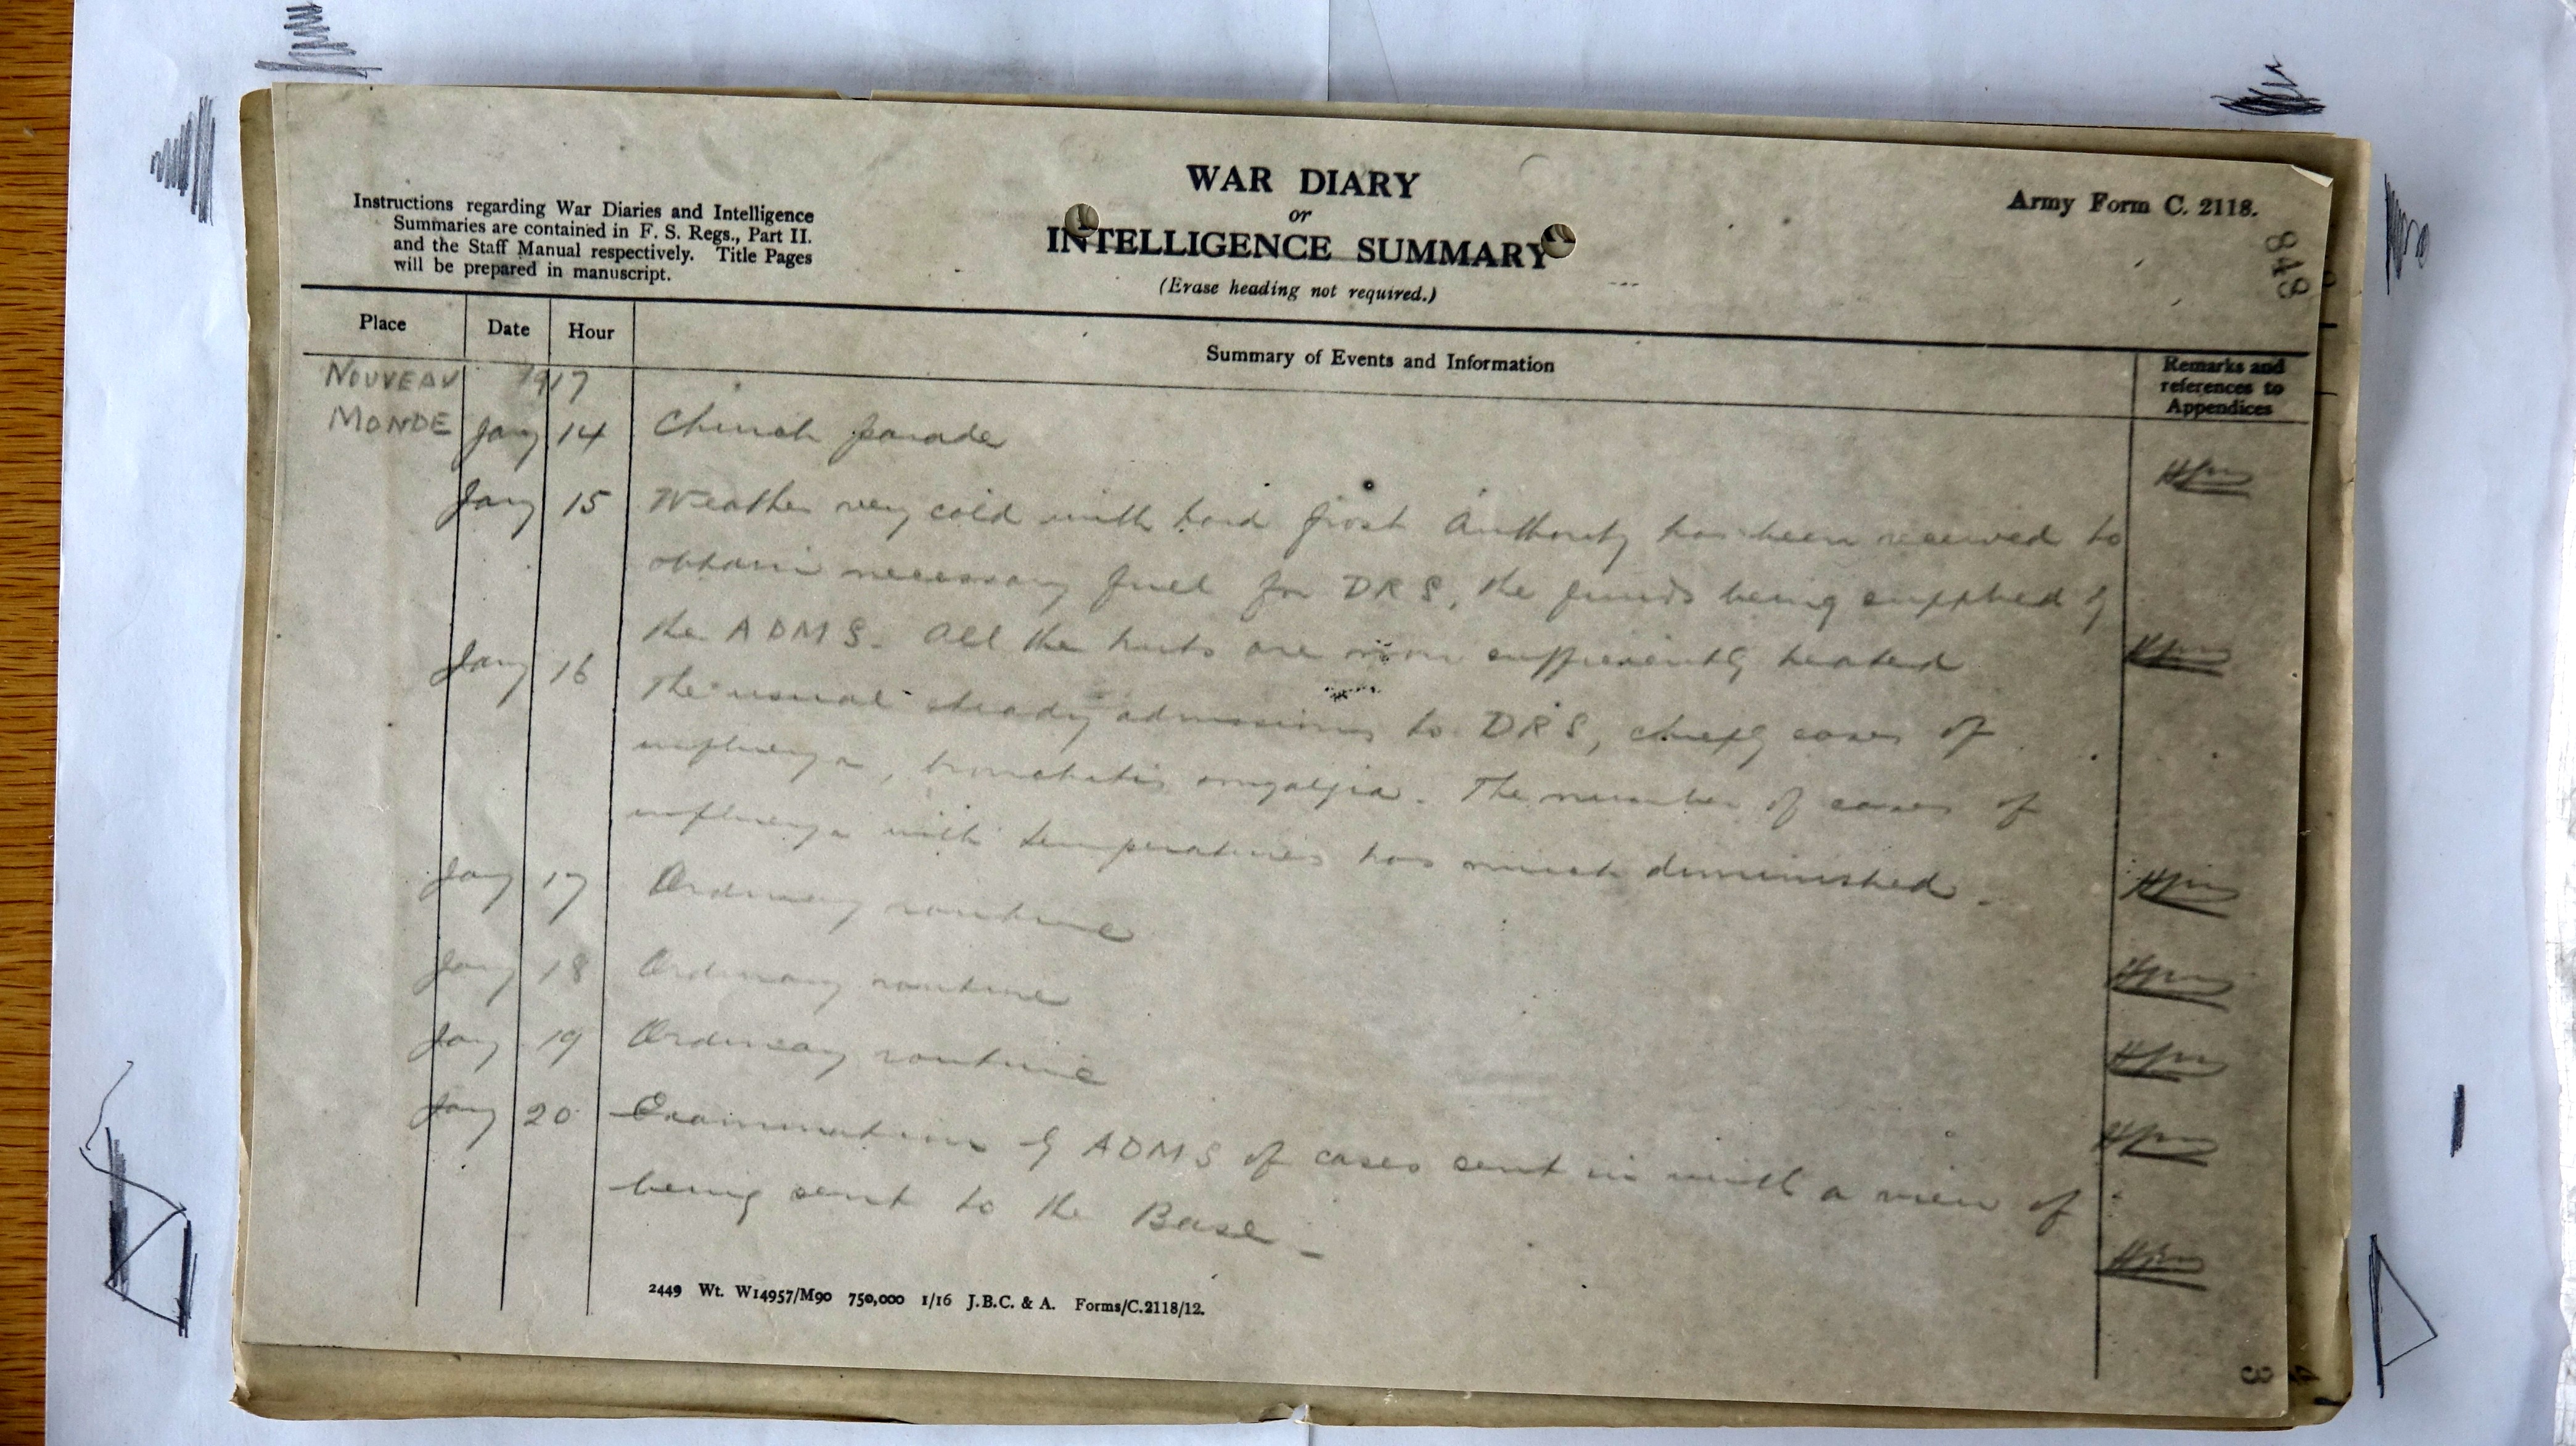 WAR DIARY
or
INTELLIGENCE SUMMARY
(Erase heading not required.)
Army Form C. 2118.
848
Instructions regarding War Diaries and Intelligence
Summaries are contained in F. S. Regs., Part II.
and the Staff Manual respectively. Title Pages
will be prepared in manuscript.
Place Date Hour Summary of Events and Information Remarks and references to Appendices
NOUVEAU 1917
MONDE Jany 14 Church parade
Jany 15 Weather very cold with hard frost Authority has been received to
obtain necessary fuel for DRS, the funds being supplied by
the ADMS. All the huts are now sufficiently heated
Jany 16 The usual steady admissions to DRS, chiefly cases of
influenza, bronchitis myalgia. The number of cases of
influenza with temperatures has much diminished.
Jany 17 Ordinary routine
Jany 18 Ordinary routine
Jany 19 Ordinary routine
Jany 20 Examination by ADMS of cases sent in with a view of
being sent to the Base
2449 Wt. W14957/M90 750,000 1/16 J.B.C. & A. Forms/C.2118/12.
3